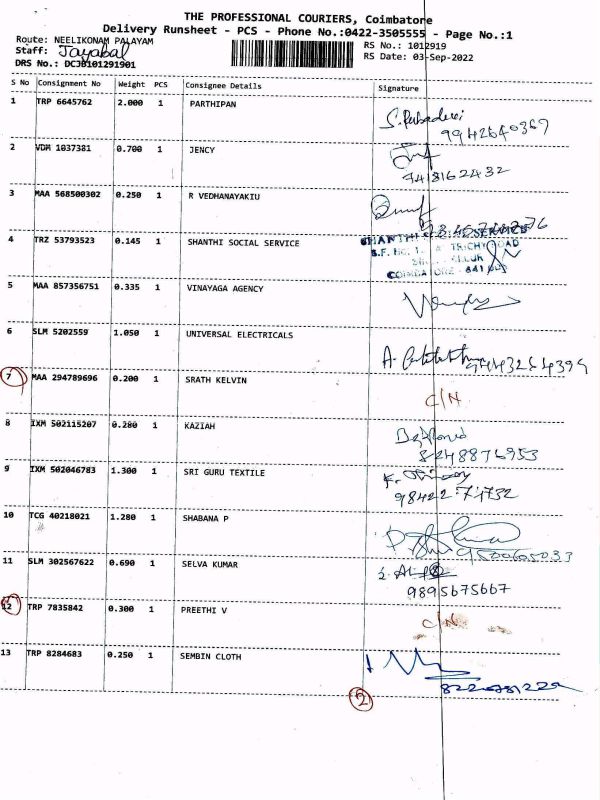 THE PROFESSIONAL COURIERS, Coimbatore
Delivery Runsheet - PCS - Phone No.:0422-3505555 - Page No.:1
Route: NEELIKONAM PALAYAM
RS No.: 1012919
Staff: Jayabal
RS Date: 03-Sep-2022
DRS No.: DCJB101291901
S No Consignment No Weight PCS Consignee Details Signature
1 TRP 6645762 2.000 1 PARTHIPAN
9942640367
2 VDM 1037381 0.700 1 JENCY
7418162432
3 MAA 568500302 0.250 1 R VEDHANAYAKIU
4 TRZ 53793523 0.145 1 SHANTHI SOCIAL SERVICE
SHANTHI SERVICE
S.F. No. TRICHY ROAD
COIMBATORE - 641
5 MAA 857356751 0.335 1 VINAYAGA AGENCY
6 SLM 5202559 1.050 1 UNIVERSAL ELECTRICALS
7 MAA 294789696 0.200 1 SRATH KELVIN
C/N
8 IXM 502115207 0.280 1 KAZIAH
8248876953
9 IXM 502046783 1.300 1 SRI GURU TEXTILE
98422 74732
10 TCG 40218021 1.280 1 SHABANA P
9500605033
11 SLM 302567622 0.690 1 SELVA KUMAR
9895675667
12 TRP 7835842 0.300 1 PREETHI V
C/N
13 TRP 8284683 0.250 1 SEMBIN CLOTH
2